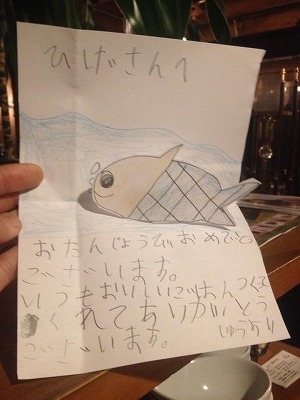 ひげさんへ
おたんじょうびおめでとう
ございます。
いつもおいしいごはんつくって
くれてありがとう
ございます。